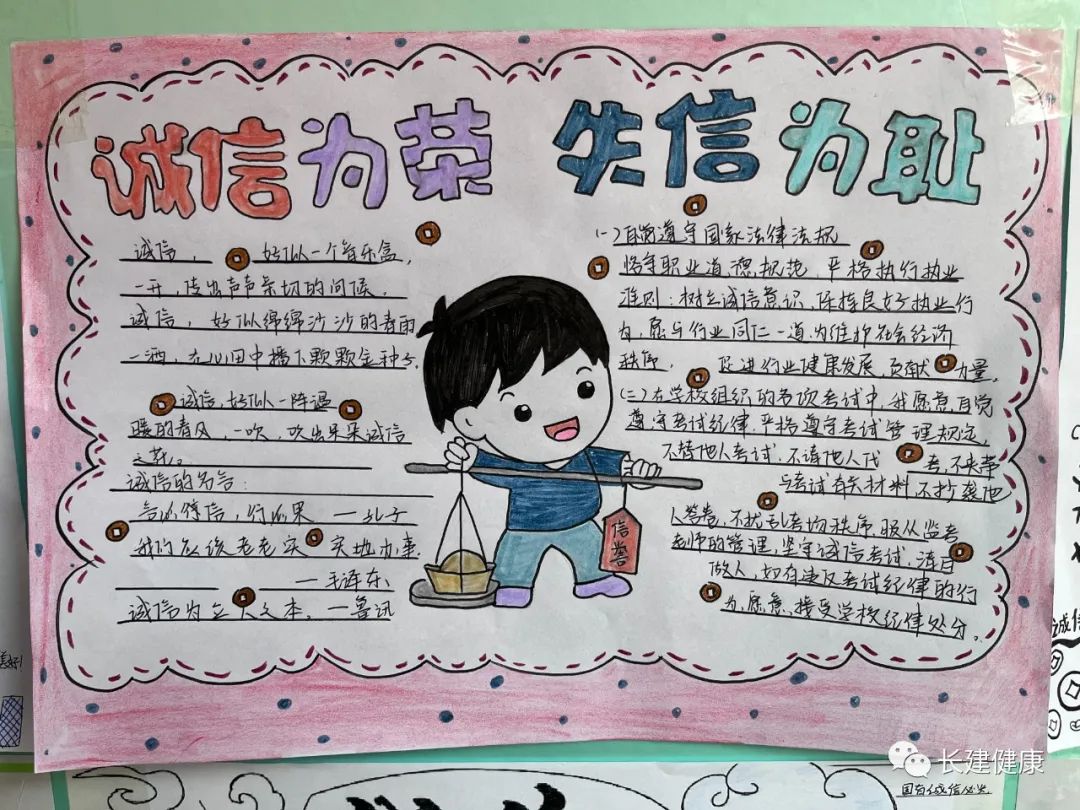 诚信为荣 失信为耻
诚信, 好似一个音乐盒,
一开,传出声声亲切的问候.
诚信, 好似绵绵沙沙的春雨
一洒,在心田中播下颗颗金种子.
诚信,好似一阵温
暖的春风,一吹,吹出朵朵诚信
之花。
诚信的名言:
言必信,行必果 —孔子
我们应该老老实实地办事.
—毛泽东
诚信为人之本. —鲁迅
(一)自觉遵守国家法律法规
恪守职业道德规范,严格执行执业
准则:树立诚信意识,保持良好执业行
为,愿与行业同仁一道为维护社会经济
秩序. 促进行业健康发展,贡献力量.
(二)在学校组织的各项考试中,我愿意自觉
遵守考试纪律.严格遵守考试管理规定,
不替他人考试,不请他人代考,不夹带
与考试有关材料,不抄袭他
人答卷,不扰乱考场秩序,服从监考
老师的管理,坚守诚信考试,洁自
做人,如有违反考试纪律的行
为,愿意接受学校纪律处分.
信誉
诚信
长建健康